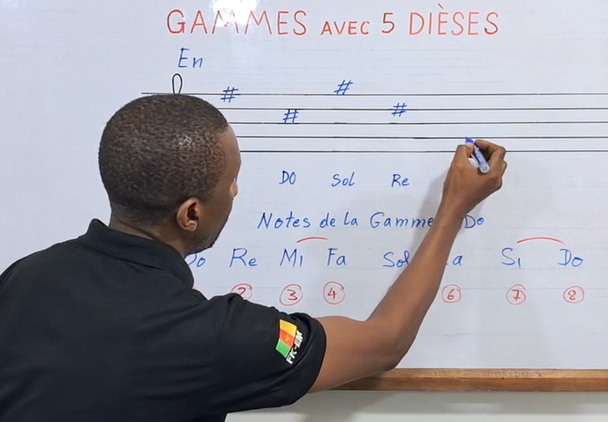 GAMMES AVEC 5 DIÈSES
En
# # # #
DO Sol Re
Notes de la Gamme Do
Do Re Mi Fa Sol La Si Do
2 3 4 6 7 8